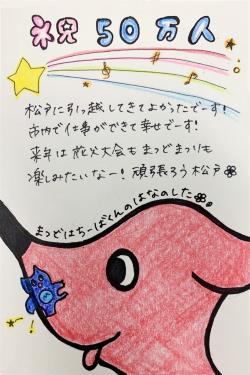 祝 50万人
松戸に引っ越してきてよかったでーす!
市内で仕事ができて幸せでーす!
来年は花火大会もまつどまつりも
楽しみたいなー!頑張ろう松戸
まつどはちーばくんのはなのした